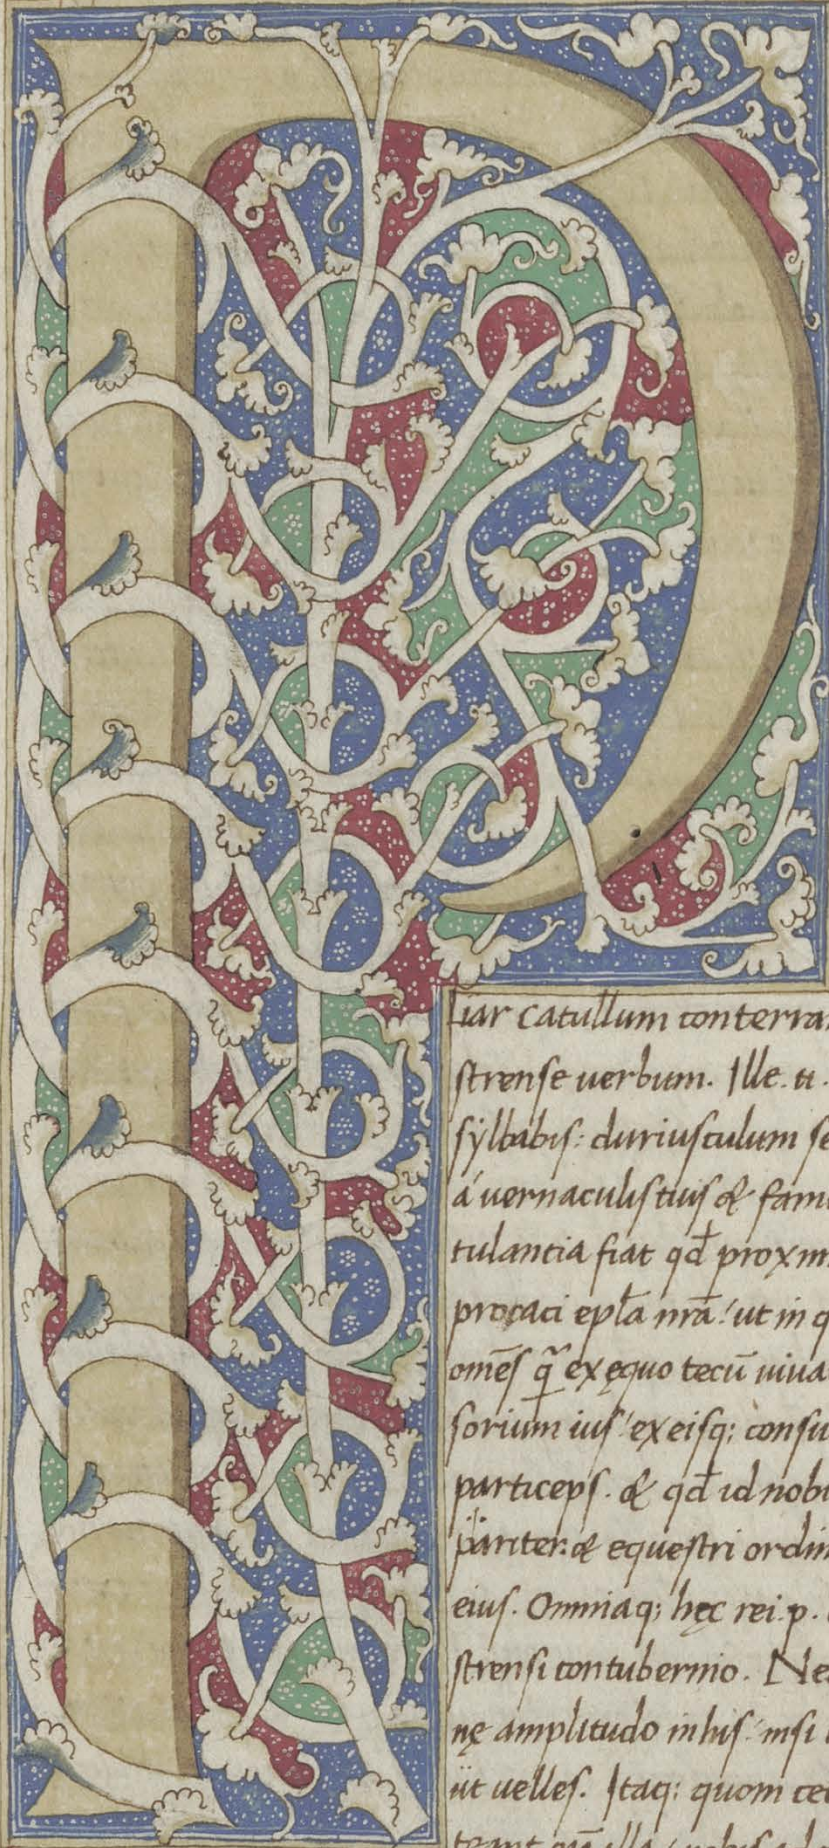 P
liar catullum conterra
strense uerbum. Ille. n.
syllabis: duriusculum se
a uernaculis tuis & fam
tulantia fiat qđ proxim
procaci epl̄a nrā: ut in q
omēs q̄ ex ęquo tecū uiua
sorium ius ex eisq; consu
particeps. & qđ id nobi
pariter: & equestri ordin
eius. Omniaq; hęc rei. p.
strensi contubernio. Ne
nę amplitudo in his: nisi
ut uelles. Itaq: quom